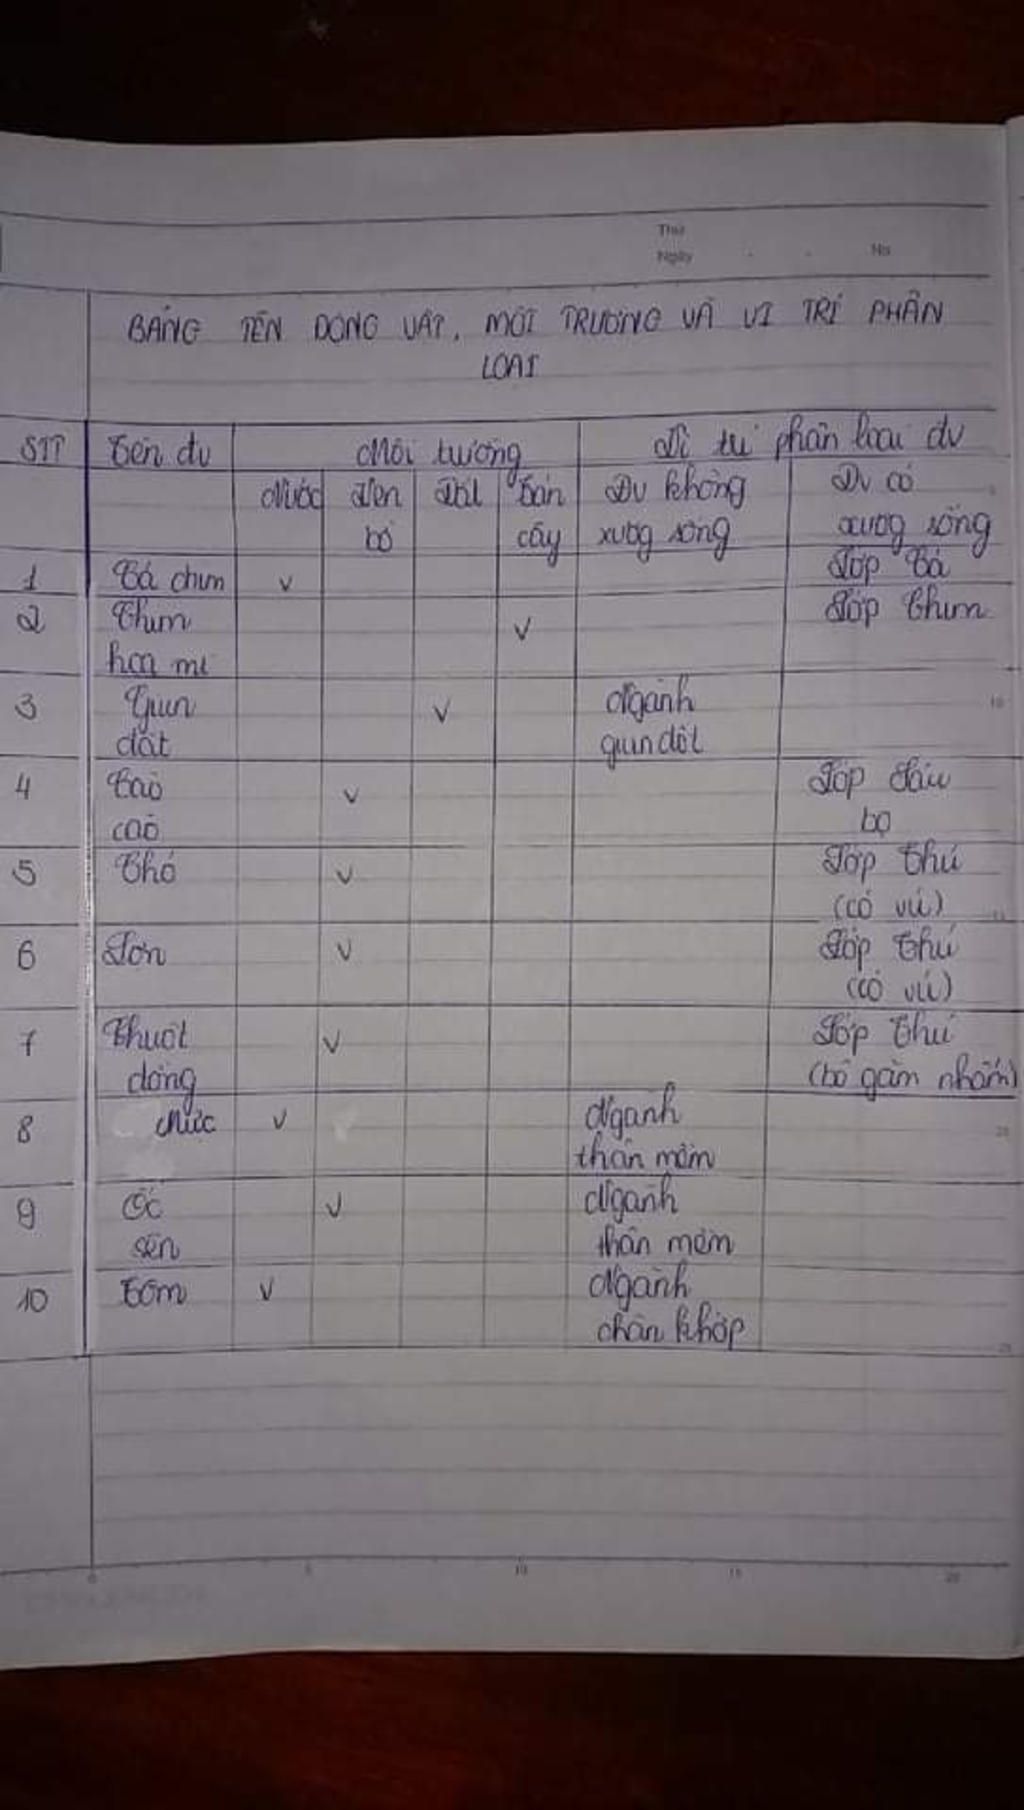 Thứ
Ngày No
BẢNG TÊN ĐỘNG VẬT, MÔI TRƯỜNG VÀ VỊ TRÍ PHÂN
LOẠI
STT Tên đv Môi trường Vị trí phân loại đv
Nước Ven Đất Tán Đv không Đv có
bờ cây xương sống xương sống
1 Cá chim v Lớp Cá
2 Chim v Lớp Chim
hoạ mi
3 Giun v Ngành
đất giun đốt
4 Cào v Lớp Sâu
cào bọ
5 Thỏ v Lớp Thú
(có vú)
6 Lợn v Lớp Thú
(có vú)
7 Chuột v Lớp Thú
đồng (bộ gặm nhấm)
8 Mực v Ngành
thân mềm
9 Ốc v Ngành
sên thân mềm
10 Tôm v Ngành
chân khớp
0 5 10 15 20